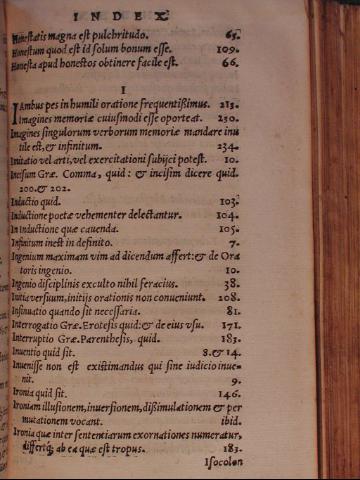 INDEX.
Honestatis magna est pulchritudo. 65.
Honestum quod est id solum bonum esse. 109.
Honesta apud honestos obtinere facile est. 66.
I
IAmbus pes in humili oratione frequentißimus. 213.
Imagines memoriæ cuiusmodi esse oporteat. 230.
Imagines singulorum verborum memoriæ mandare inu
tile est, & infinitum. 234.
Imitatio vel arti, vel exercitationi subijci potest. 10.
Incisum Græ. Comma, quid: & incisim dicere quid.
200. & 202.
Inductio quid. 103.
Inductione poetæ vehementer delectantur. 104.
In Inductione quæ cauenda. 105.
Infinitum inest in definito. 7.
Ingenium maximam vim ad dicendum affert: & de Ora
toris ingenio. 10.
Ingenio disciplinis exculto nihil feracius. 38.
Initia versuum, initijs orationis non conueniunt. 208.
Insinuatio quando sit necessaria. 81.
Interrogatio Græ. Erotesis quid: & de eius vsu. 171.
Interruptio Græ. Parenthesis, quid. 183.
Inuentio quid sit. 8. & 14.
Inuenisse non est existimandus qui sine iudicio inue-
nit. 9.
Ironia quid sit. 146.
Ironiam illusionem, inuersionem, dißimulationem & per
mutationem vocant. ibid.
Ironia quæ inter sententiarum exornationes numeratur,
differtq; ab ea quæ est tropus. 183.
Isocolon